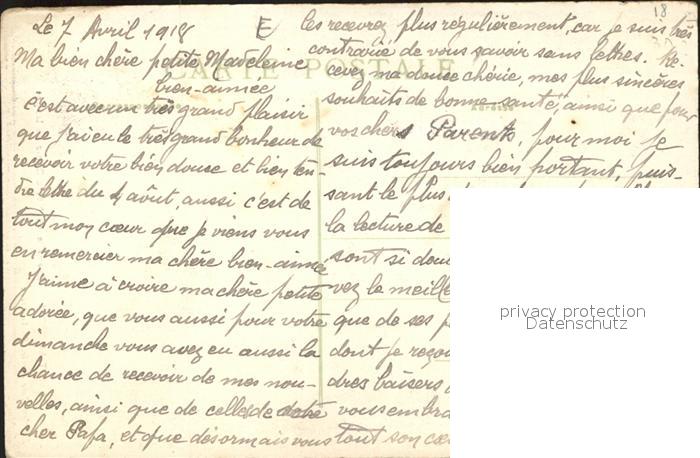 Le 7 Avril 1918 E
Ma bien chère petite Madeleine
bien-aimée
CARTE POSTALE
c'est avec un très grand plaisir
que j'ai eu le très grand bonheur de
recevoir votre bien douce et bien ten-
dre lettre du 4 août, aussi c'est de
tout mon cœur que je viens vous
en remercier ma chère bien-aimée
J'aime à croire ma chère petite
adorée, que vous aussi pour votre
dimanche vous avez eu aussi la
chance de recevoir de mes nou-
velles, ainsi que de celles de notre
cher Papa, et que désormais vous
18
les recevrez plus régulièrement, car je suis très
contrarié de vous savoir sans lettres. Re-
cevez ma douce chérie, mes plus sincères
souhaits de bonne santé, ainsi que pour
vos chers Parents, pour moi je
suis toujours bien portant, puis-
sant le plus
la lecture de
sont si dou
vez le meill
que de ses p
dont je reço
dres baisers
vous embra
tout son cœ
privacy protection
Datenschutz